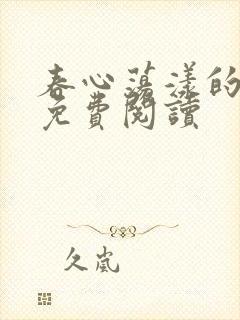 春心蕩漾的
免費閱讀
久嵐